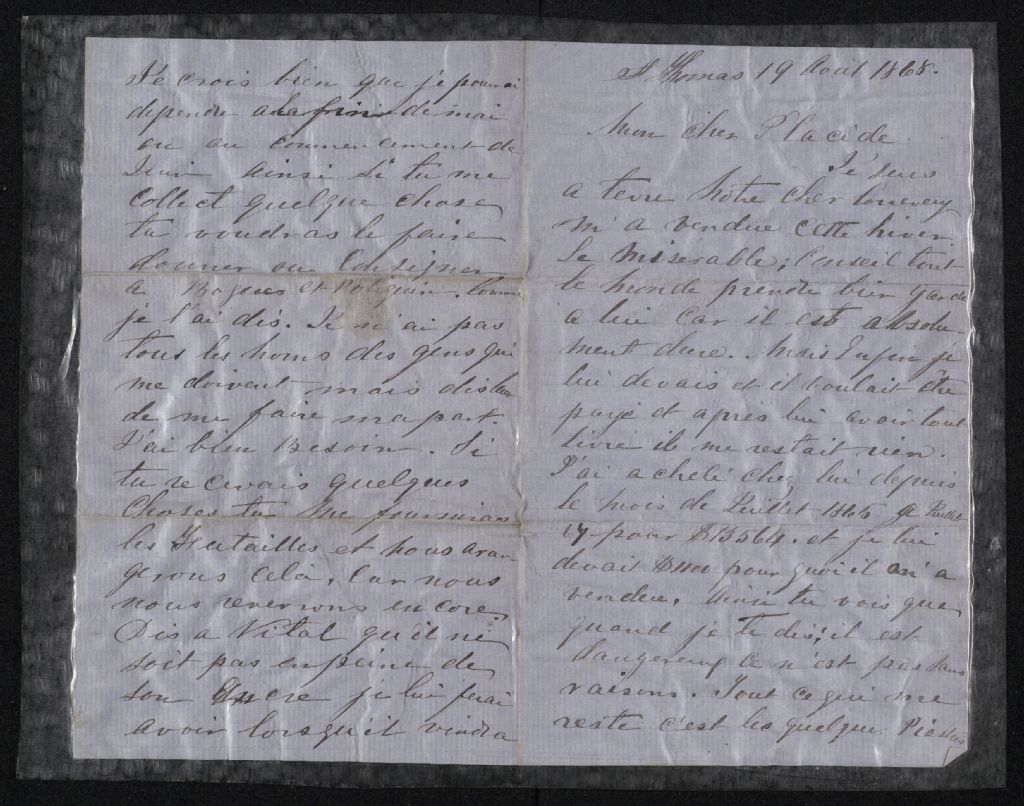 St Thomas 19 Août 1868.
Mon cher Placide.
Je suis
a terre Notre cher
m'a vendue cette hiver
Le Misérable; Conseil tout
le monde prende bien garde
a lui Car il est absolu-
ment dure. Mais Enfin je
lui devais et il voulait être
payé et après lui avoir tout
livré il me restait rien.
J'ai acheté chez lui depuis
le mois de Juillet 1866 a Juillet
pour $13564. et je lui
devait $1100 pour quoi il m'a
vendue. Ainsi tu vois que
quand je te dis; il est
dangereux ce n'est pas sans
raisons. Tout ce qui me
reste c'est les quelque Piastres
Je crois bien que je pourai
dependre a la fin de mai
ou au commencement de
Juin ainsi Si tu me
Collect quelque chose
tu voudras le faire
donner ou Consigner
a et Comme
je l'ai dis. Je n'ai pas
tous les noms des gens qui
me doivent mais dis leur
de me faire ma part.
J'ai bien Besoin. Si
tu recevais quelques
Choses tu me fournirais
les Futailles et nous aran
gerons celà, Car nous
nous reverrons encore
Dis a Vital qu'il ne
soit pas en peine de
son Ancre je lui ferai
avoir lorsqu'il viendra